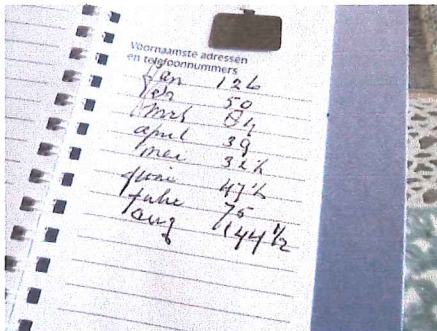 Voornaamste adressen
en telefoonnummers
Jan 126
Feb 50
Mrt
april 39
mei 32 ½
juni 47 ½
julie 75
aug 144 ½